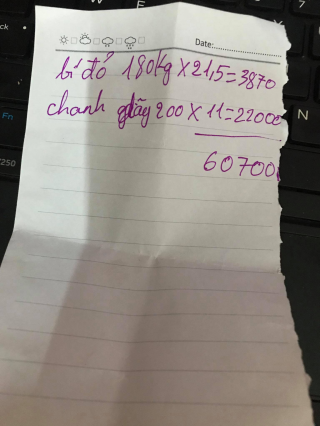 Date:
bí đỏ 180kg x 21,5=3870
chanh giây 200 x 11=22000
60700
Fn
N